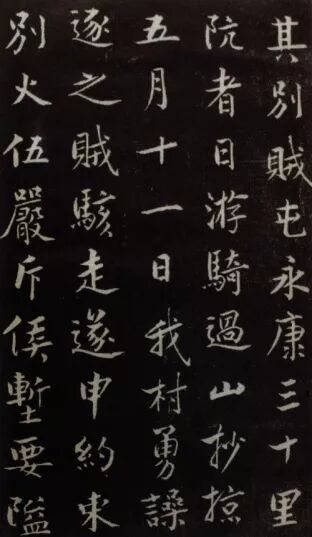 其別賊屯永康三十里
阬者日游騎過山抄掠
五月十一日我村勇譟
逐之賊駭走遂申約束
別火伍嚴斥候塹要隘